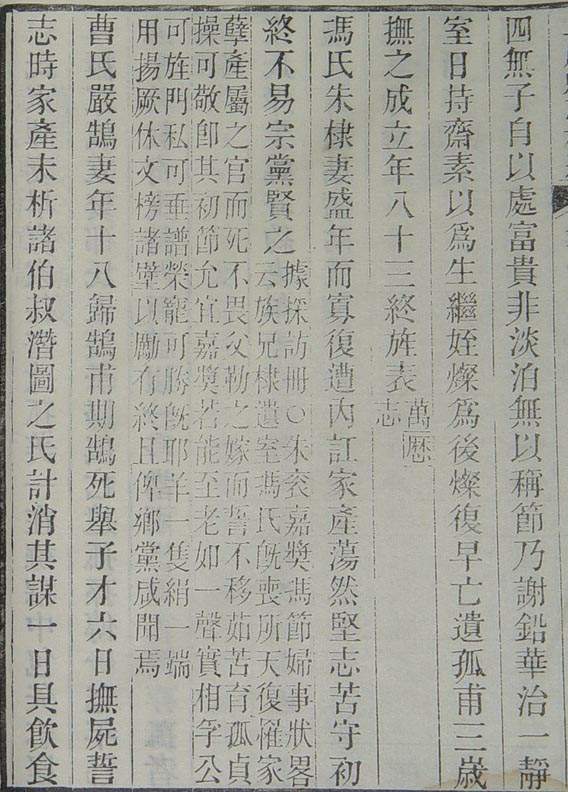 四無子自以處富貴非淡泊無以稱節乃謝鉛華治一靜
室日持齋素以爲生繼姪燦爲後燦復早亡遺孤甫三歲
撫之成立年八十三終旌表
萬歷
志
馮氏朱棣妻盛年而寡復遭內訌家產蕩然堅志苦守初
終不易宗黨賢之
據採訪冊○朱衮嘉獎馮節婦事狀畧
云族兄棣遺室馮氏旣喪所天復罹家
孽產屬之官而死不畏父勒之嫁而誓不移茹苦育孤貞
操可敬卽其初節允宜嘉獎若能至老如一聲實相孚公
可旌門私可垂譜榮寵可勝旣耶羊一隻絹一端
用揚厥休文榜諸壁以勵有終且俾鄉黨咸聞焉
曹氏嚴鵠妻年十八歸鵠甫期鵠死舉子才六日撫屍誓
志時家產未析諸伯叔潛圖之氏計消其謀一日具飲食